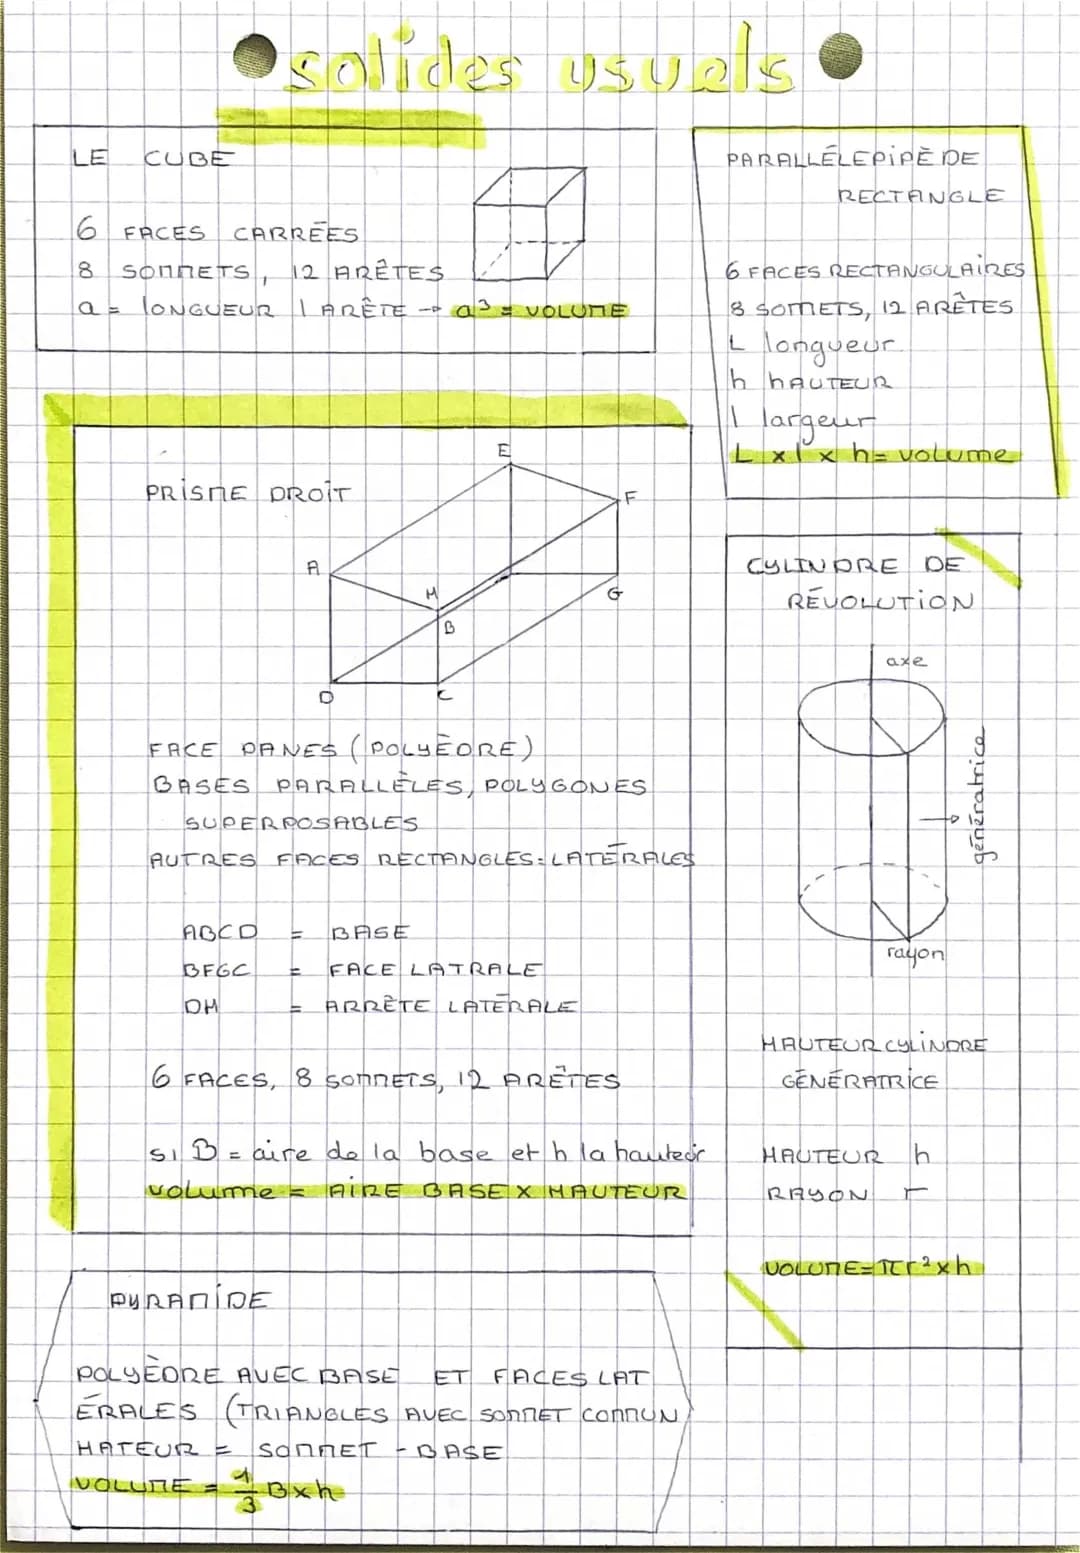 solides usuels
LE CUBE
6 FACES CARRÉES
8 SOMMETS, 12 ARÊTES
a = lONGUEUR 1 ARÊTE → a³ = VOLUME
PARALLÉLEPIPÈDE
RECTANGLE
6 FACES RECTANGULAIRES
8 SOMETS, 12 ARÊTES
L longueur
h hAUTEUR
l largeur
L x l x h = volume
PRISME DROIT
E
F
A
H
G
B
D
C
FACE PANES (POLYÈDRE)
BASES PARALLÈLES, POLYGONES
SUPERPOSABLES
AUTRES FACES RECTANGLES = LATÉRALES
ABCD = BASE
BFGC = FACE LATRALE
DH = ARRÊTE LATÉRALE
6 FACES, 8 SOMMETS, 12 ARÊTES
si B = aire de la base et h la hauteur
volume = AIRE BASE X HAUTEUR
CYLINDRE DE
RÉVOLUTION
axe
génératrice
rayon
HAUTEUR CYLINDRE
GÉNÉRATRICE
HAUTEUR h
RAYON r
VOLUME = πr² x h
PYRAMIDE
POLYÈDRE AVEC BASE ET FACES LAT
ÉRALES (TRIANGLES AVEC SOMMET COMMUN
HATEUR = SOMMET - BASE
VOLUME = 1/3 B x h